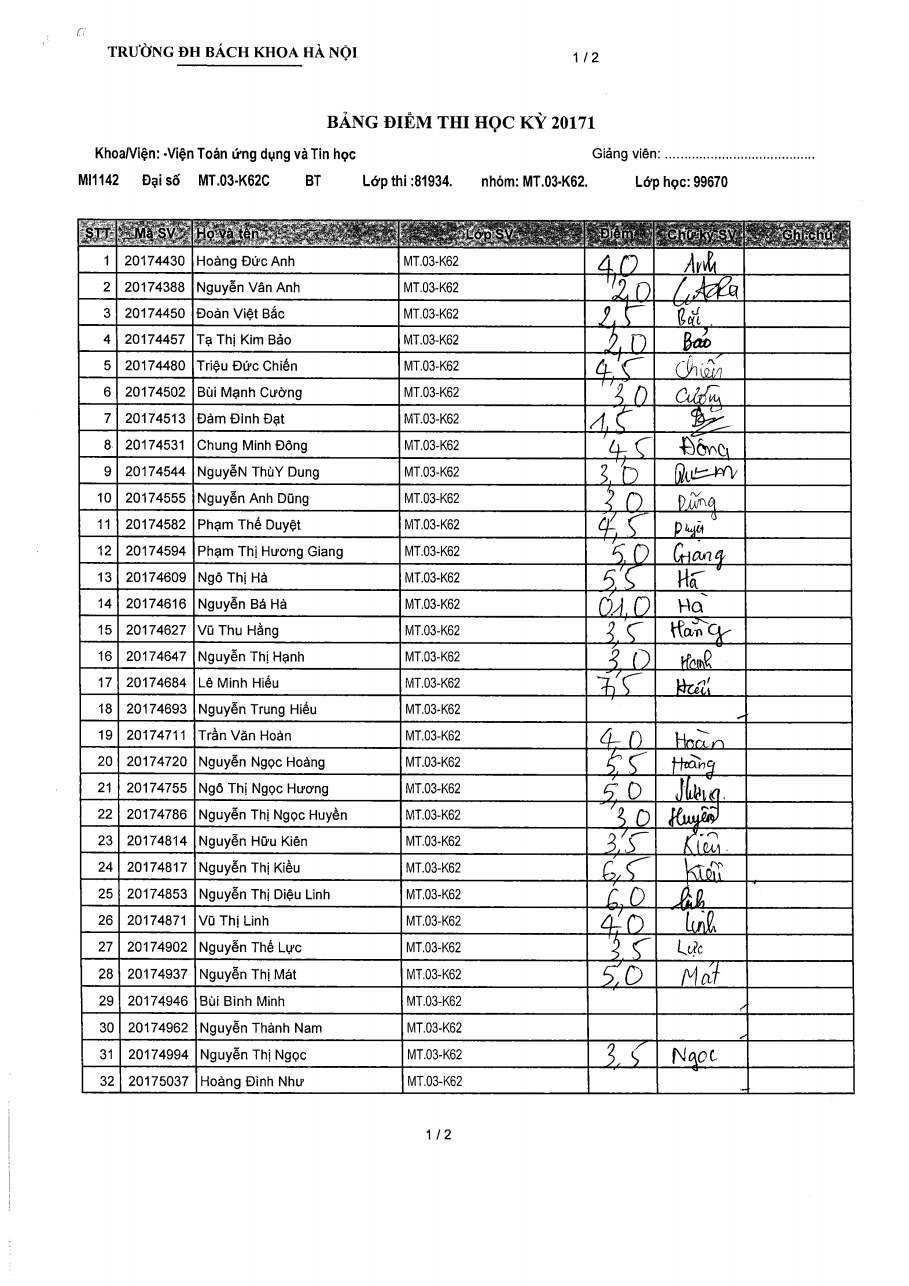 TRƯỜNG ĐH BÁCH KHOA HÀ NỘI
1 / 2
BẢNG ĐIỂM THI HỌC KỲ 20171
Khoa/Viện: -Viện Toán ứng dụng và Tin học Giảng viên: ..........................................
MI1142 Đại số MT.03-K62C BT Lớp thi :81934. nhóm: MT.03-K62. Lớp học: 99670
STT Mã SV Họ và tên Lớp SV Điểm Chữ ký SV Ghi chú
1 20174430 Hoàng Đức Anh MT.03-K62 4,0 Anh
2 20174388 Nguyễn Vân Anh MT.03-K62 2,0
3 20174450 Đoàn Việt Bắc MT.03-K62 2,5 Bắc
4 20174457 Tạ Thị Kim Bảo MT.03-K62 2,0 Bảo
5 20174480 Triệu Đức Chiến MT.03-K62 4,5 Chiến
6 20174502 Bùi Mạnh Cường MT.03-K62 3,0 Cường
7 20174513 Đàm Đình Đạt MT.03-K62 1,5
8 20174531 Chung Minh Đông MT.03-K62 4,5 Đông
9 20174544 NguyễN ThùY Dung MT.03-K62 3,0
10 20174555 Nguyễn Anh Dũng MT.03-K62 3,0 Dũng
11 20174582 Phạm Thế Duyệt MT.03-K62 4,5 Duyệt
12 20174594 Phạm Thị Hương Giang MT.03-K62 5,0 Giang
13 20174609 Ngô Thị Hà MT.03-K62 5,5 Hà
14 20174616 Nguyễn Bá Hà MT.03-K62 01,0 Hà
15 20174627 Vũ Thu Hằng MT.03-K62 3,5 Hằng
16 20174647 Nguyễn Thị Hạnh MT.03-K62 3,0 Hạnh
17 20174684 Lê Minh Hiếu MT.03-K62 7,5 Hiếu
18 20174693 Nguyễn Trung Hiếu MT.03-K62
19 20174711 Trần Văn Hoàn MT.03-K62 4,0 Hoàn
20 20174720 Nguyễn Ngọc Hoàng MT.03-K62 5,5 Hoàng
21 20174755 Ngô Thị Ngọc Hương MT.03-K62 5,0 Hương
22 20174786 Nguyễn Thị Ngọc Huyền MT.03-K62 3,0 Huyền
23 20174814 Nguyễn Hữu Kiên MT.03-K62 3,5 Kiên
24 20174817 Nguyễn Thị Kiều MT.03-K62 6,5 Kiều
25 20174853 Nguyễn Thị Diệu Linh MT.03-K62 6,0 Linh
26 20174871 Vũ Thị Linh MT.03-K62 4,0 Linh
27 20174902 Nguyễn Thế Lực MT.03-K62 3,5 Lực
28 20174937 Nguyễn Thị Mát MT.03-K62 5,0 Mát
29 20174946 Bùi Bình Minh MT.03-K62
30 20174962 Nguyễn Thành Nam MT.03-K62
31 20174994 Nguyễn Thị Ngọc MT.03-K62 3,5 Ngọc
32 20175037 Hoàng Đình Như MT.03-K62
1 / 2